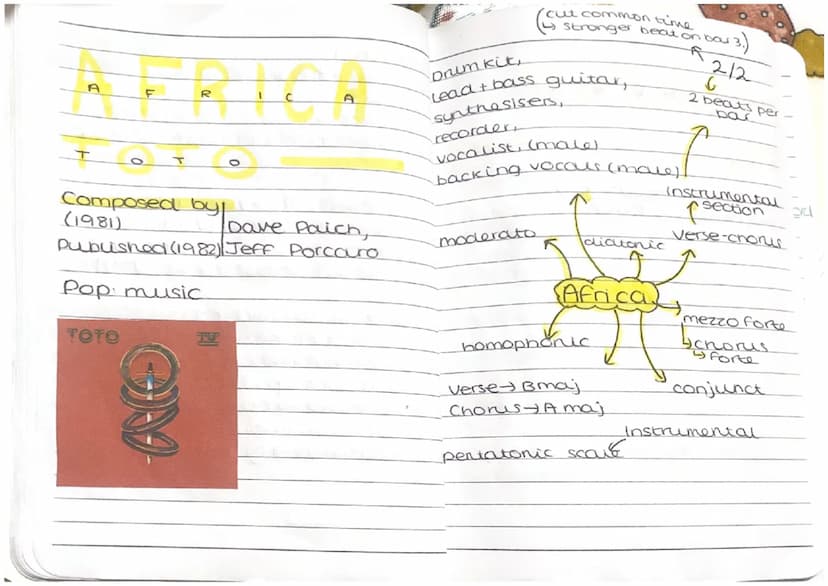 AFRICA
AFRICA
TOTO
TOTO
Composed by
(1981)
Dave Paich,
Published (1982)
Jeff Porcaro
Pop music
TOTO IV
(cut common time
↳ stronger beat on bar 3.)
2/2
2 beats per
bar
Drum kit,
lead + bass guitar,
synthesisers,
recorder,
vocalist, (male)
backing vocals (male)
instrumental
section
moderato
diatonic
verse-chorus
Africa
mezzo forte
↳ chorus
↳ forte
homophonic
conjunct
Verse → B maj
Chorus → A maj
Instrumental
pentatonic scale